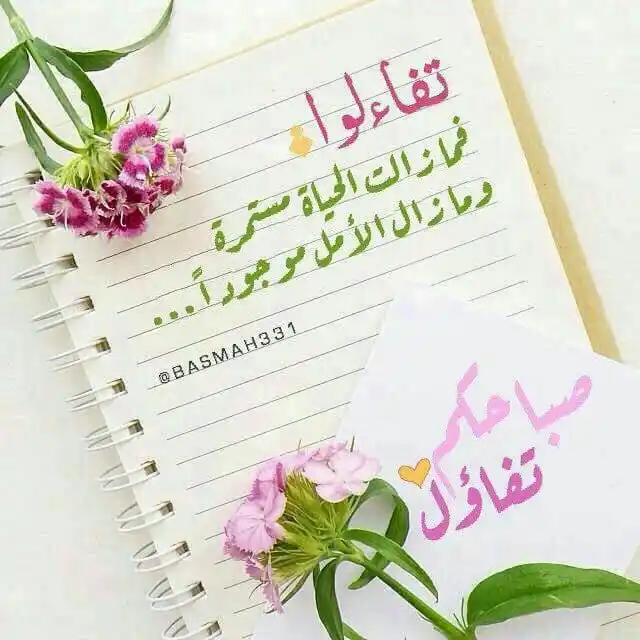 تفاءلوا
فمازالت الحياة مستمرة
ومازال الأمل موجوداً...
@BASMAH331
صباحكم
تفاؤل